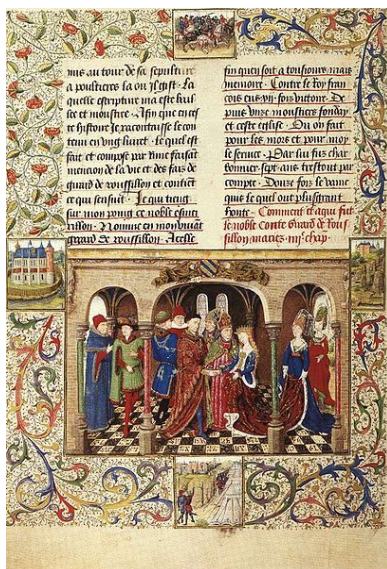 mis au tour de sa sepulture
a poultieres la ou il gist. La
quelle escripture ma este bail
lee et moustree. Afin que en ces
te histoire je racontaisse le con
tenu en ung livret. Le quel est
fait et compose par rime faisat
mencion de la vie et des fais de
guerard de roussillon et contiet
ce qui sensuit. Je qui tieng
sur mon poing ce noble esme
rillon. Nomme en mon
gerard de roussillon.
fin quen soit a tousiours mais
memoire. Contre le Roy fran
cois eus victoire. De
puis unze monstiers fonday
et ceste eglise. Ou on fait
pour les mors et pour moy
le service. Par lui fus char
bonnier sept ans trestout par
compte. Douze fois le vain
qui le quel ot plusgrant
honte. Comment et a qui fut
le noble Conte Gerard de Rous
sillon mariez. iiij. chap.